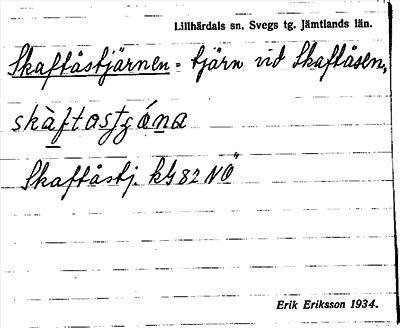 Lillhärdals sn. Svegs tg. Jämtlands län.
Skaftåstjärnen = tjärn vid Skaftåsen,
skàftostgǻna
Skaftåstj. kbl 82 NO"
Erik Eriksson 1934.